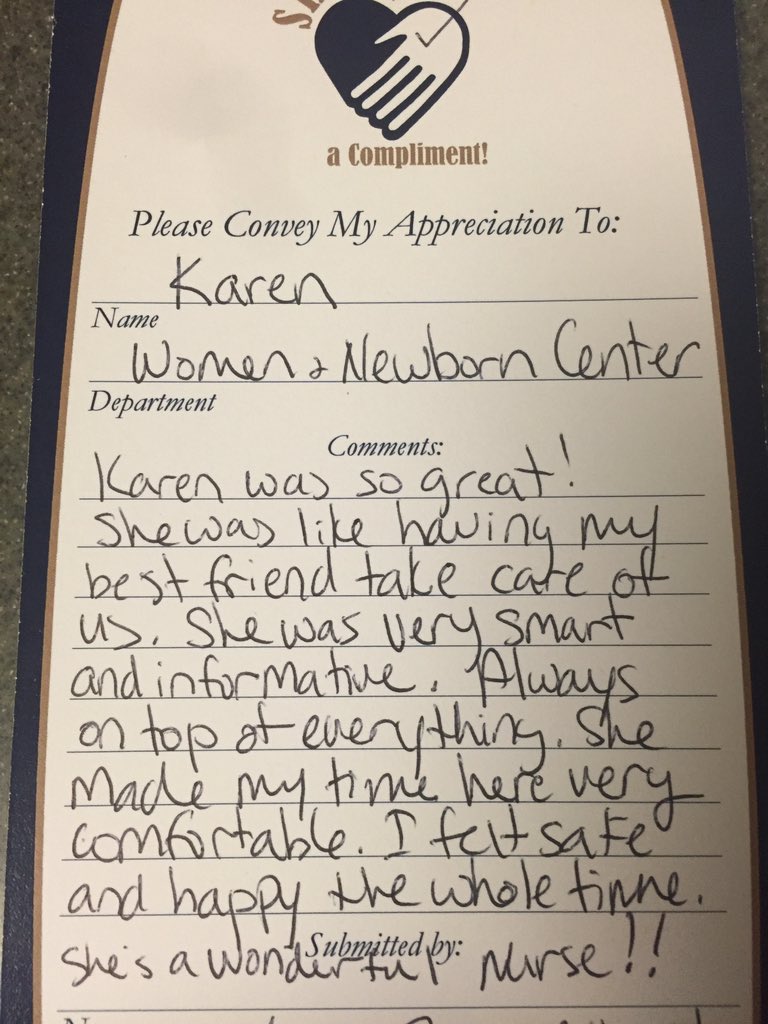 a Compliment!
Please Convey My Appreciation To:
Karen
Name
Women & Newborn Center
Department
Comments:
Karen was so great!
She was like having my
best friend take care of
us. She was very smart
and informative. Always
on top of everything. She
made my time here very
comfortable. I felt safe
and happy the whole time.
Submitted by:
she's a wonderful nurse!!